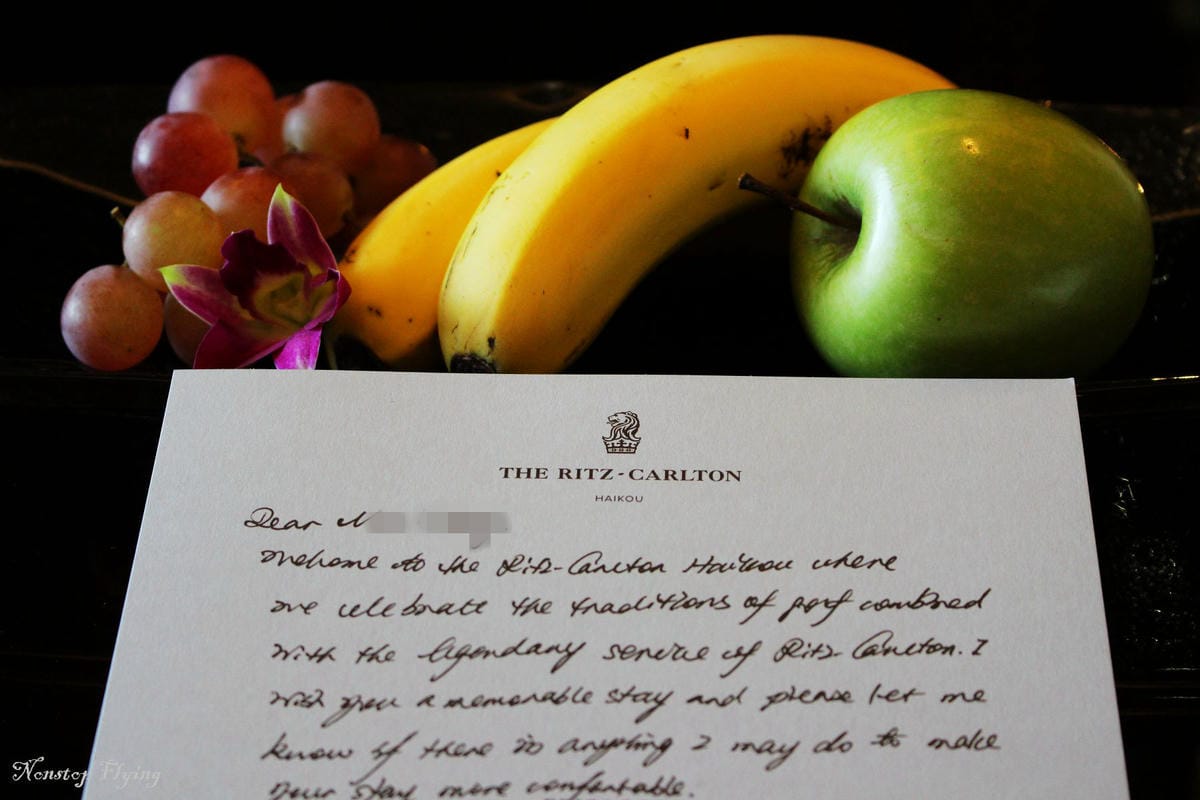 THE RITZ-CARLTON
HAIKOU
Dear
Welcome to the Ritz-Carlton Haikou where
we celebrate the traditions of golf combined
with the legendary service of Ritz-Carlton. I
wish you a memorable stay and please let me
know if there is anything I may do to make
your stay more comfortable.
Nonstop Flying